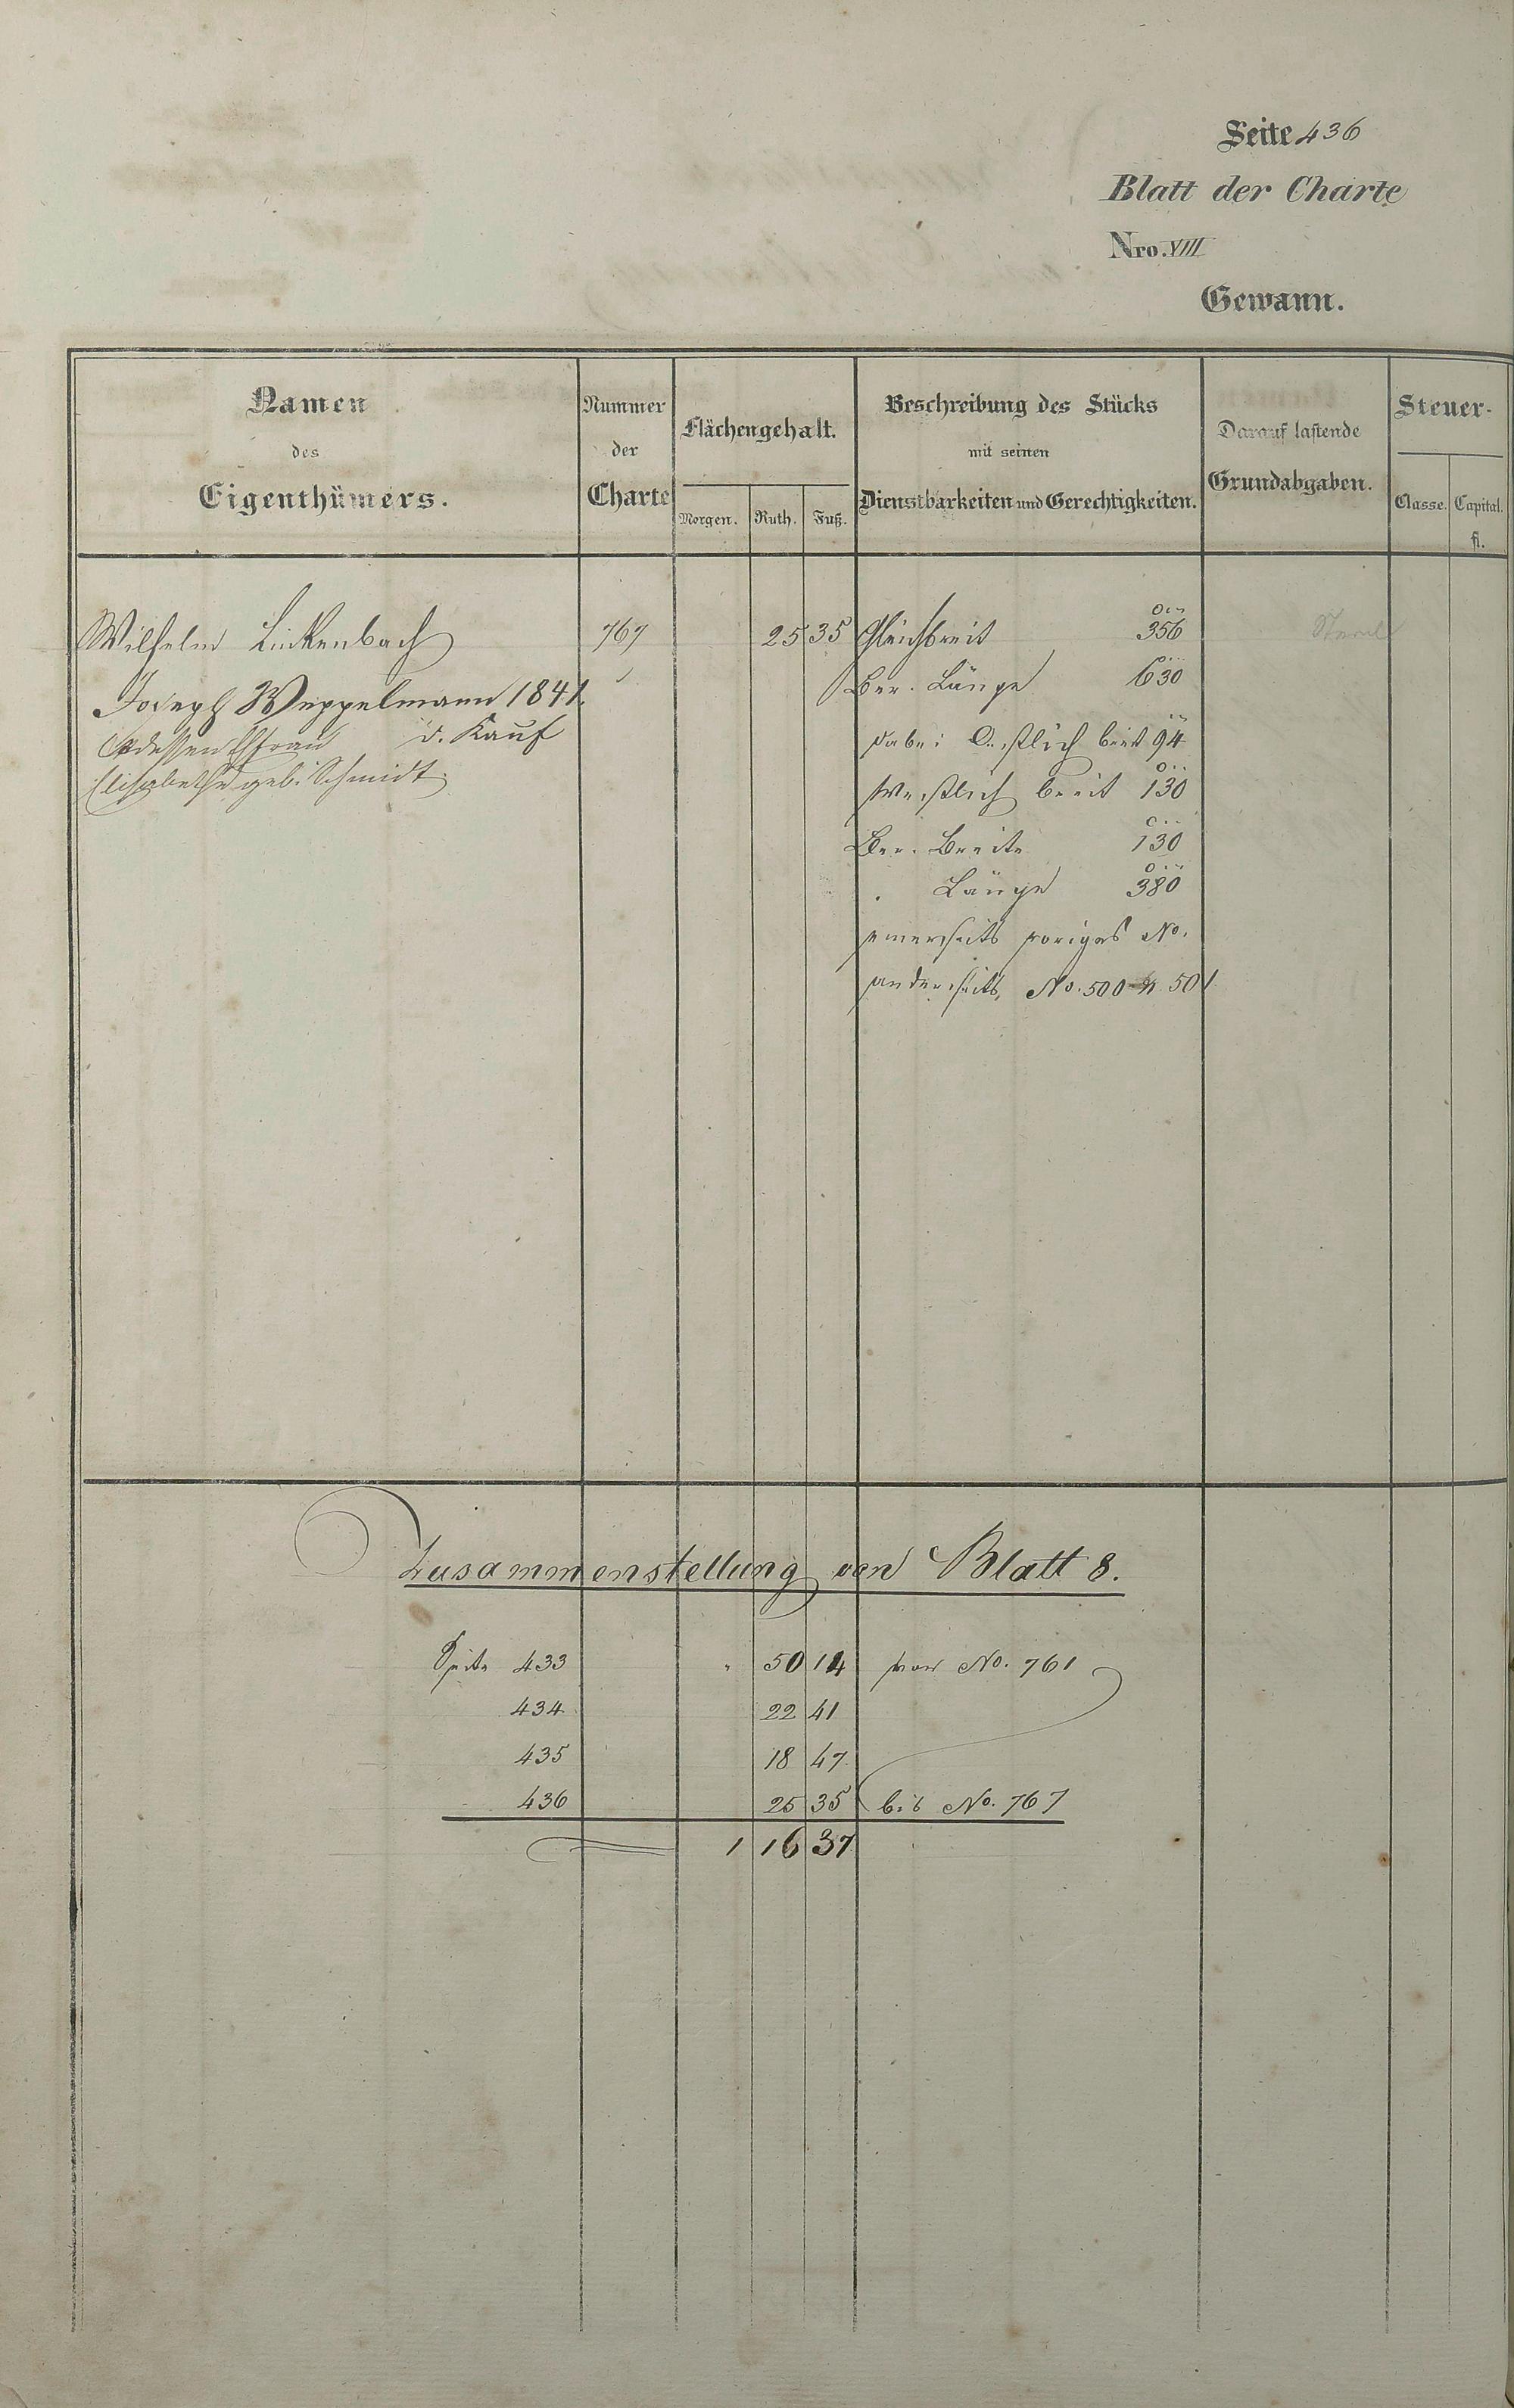 Seite 436
Blatt der Charte
Nro. VIII
Gewann.
Namen des Eigenthümers.
Nummer der Charte
Flächengehalt.
Morgen. Ruth. Fuß.
Beschreibung des Stücks mit seinen Dienstbarkeiten und Gerechtigkeiten.
Darauf lastende Grundabgaben.
Steuer-
Classe. Capital. fl.
Wilhelm Linkenbach 767 25 35 Gleichbreit 356
Joseph Weppelmann 1841. Ber. Länge 630
dessen Ehfrau d. Kauf dabei Oestlich breit 94
Elisabethe geb. Schmidt westlich breit 130
Ber. Breite 130
Länge 380
einerseits voriges No.
anderseits, No. 500 501
Zusammenstellung von Blatt 8.
Seite 433 50 14 von No. 761
434 22 41
435 18 47
436 25 35 bis No. 767
1 16 37